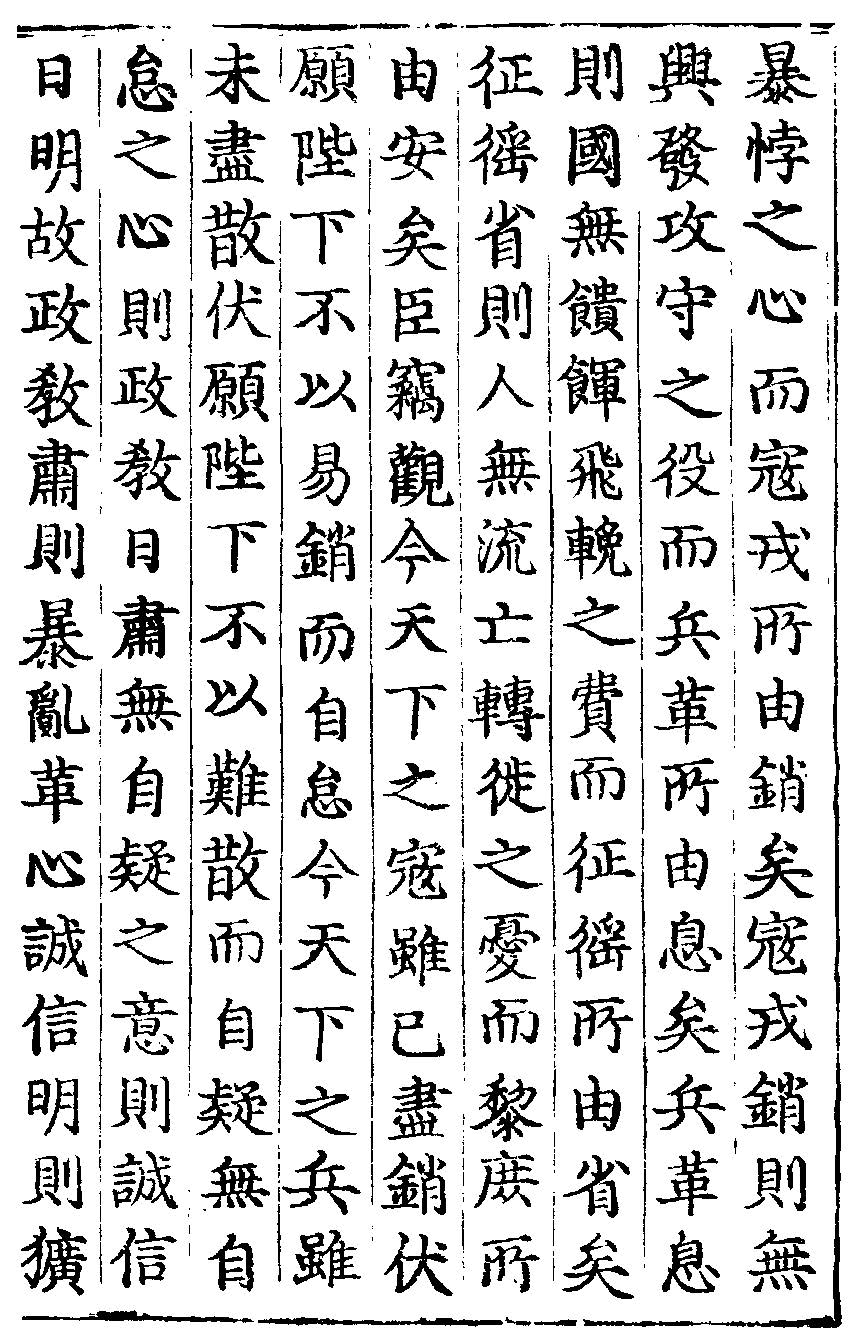 暴悖之心而寇戎所由銷矣寇戎銷則無
興發攻守之役而兵革所由息矣兵革息
則國無饋餫飛輓之費而征徭所由省矣
征徭省則人無流亡轉徙之憂而黎庶所
由安矣臣竊觀今天下之寇雖已盡銷伏
願陛下不以易銷而自怠今天下之兵雖
未盡散伏願陛下不以難散而自疑無自
怠之心則政教日肅無自疑之意則誠信
日明故政教肅則暴亂革心誠信明則獷